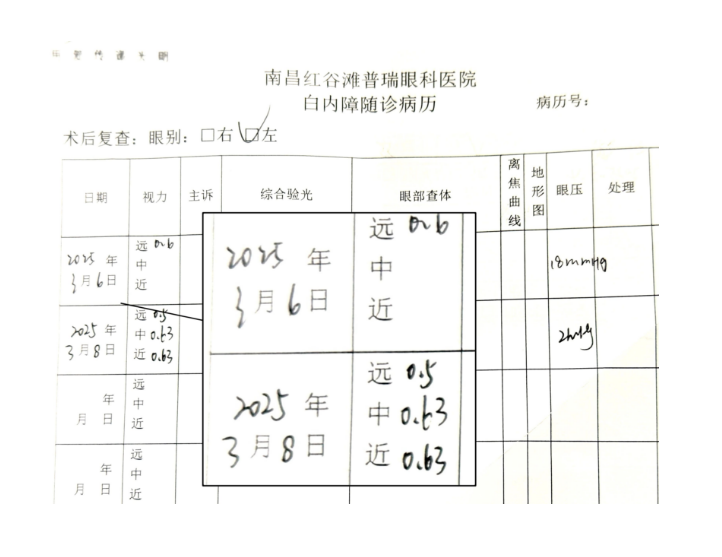 南昌红谷滩普瑞眼科医院
白内障随诊病历
病历号:
术后复查: 眼别: □右 □左
日期 视力 主诉 综合验光 眼部查体 离焦曲线 地形图 眼压 处理
2025 年 3月6日 远 0.6 中 近 18mmHg
2025 年 3月8日 远 0.5 中 0.63 近 0.63
年 月 日 远 中 近
年 月 日 远 中 近
2025 年 3月6日 远 0.6 中 近
2025 年 3月8日 远 0.5 中 0.63 近 0.63